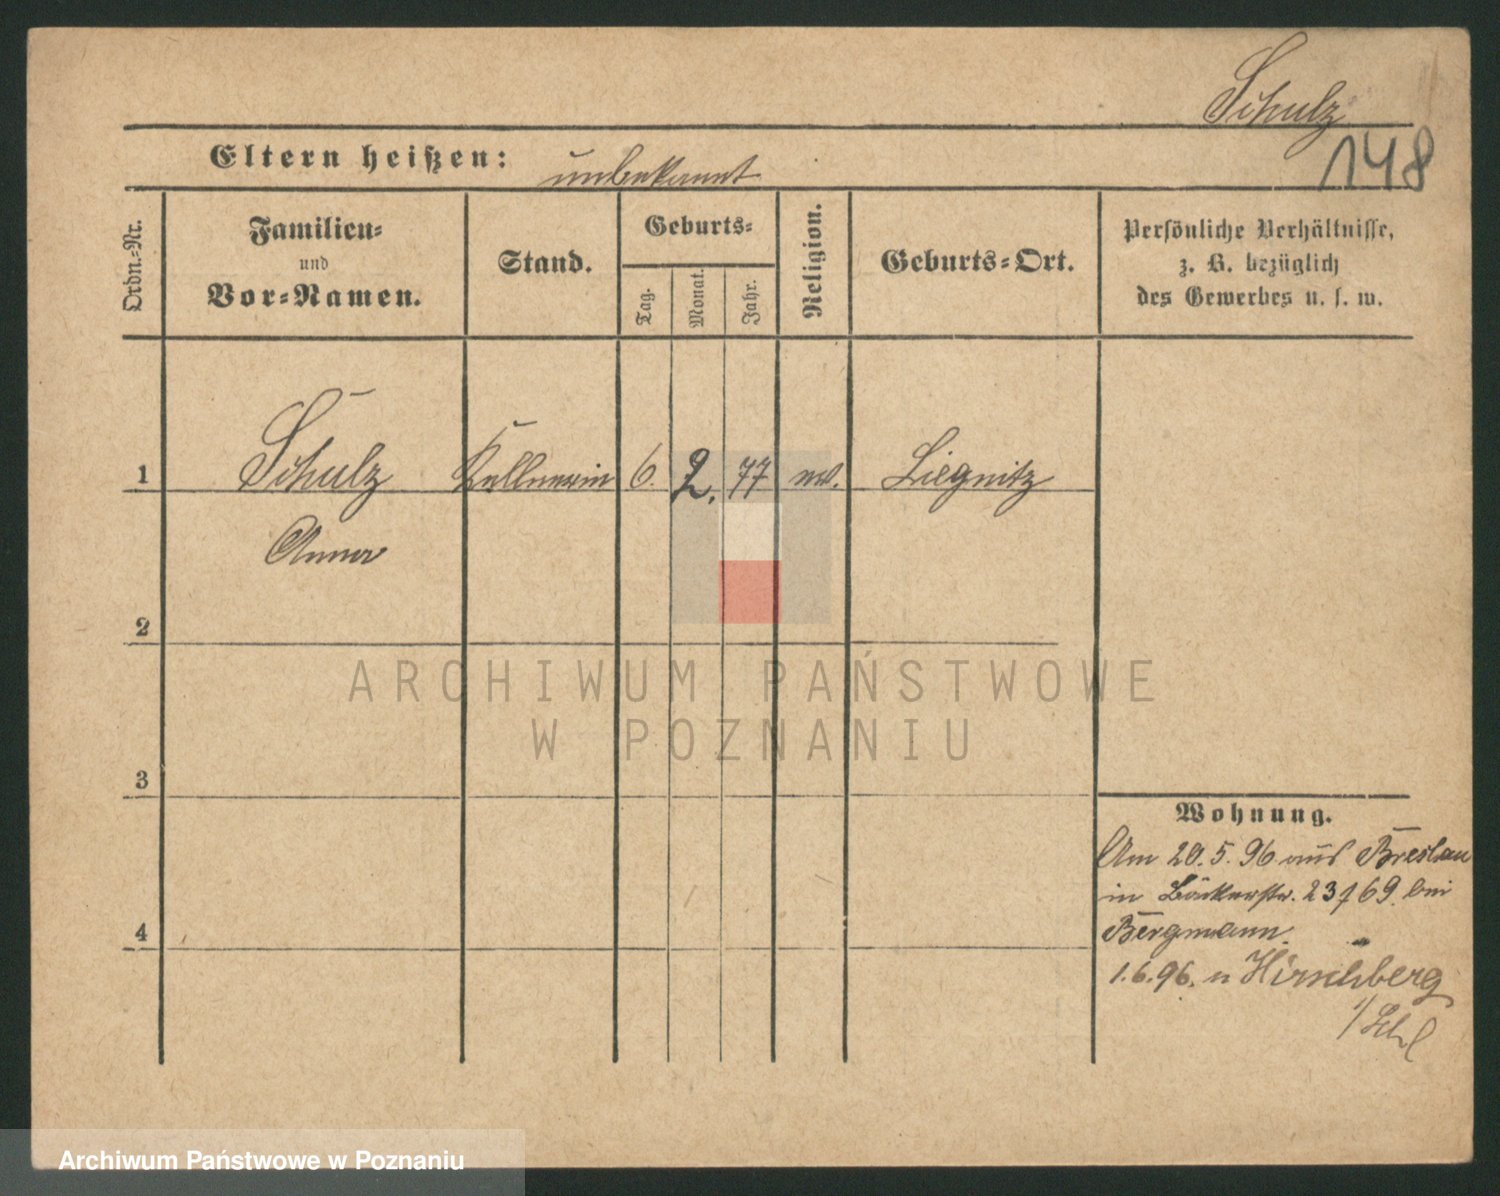 Schulz
Eltern heißen: unbekannt
148
Ordn.-Nr.
Familien-
und
Vor-Namen.
Stand.
Geburts-
Tag.
Monat.
Jahr.
Religion.
Geburts-Ort.
Persönliche Verhältnisse,
z. B. bezüglich
des Gewerbes u. s. w.
1 Schulz Kellnerin 6. 2. 77 ev. Liegnitz
Anna
2
ARCHIWUM PAŃSTWOWE
W POZNANIU
3
Wohnung.
Am 20.5.96 aus Breslau
in Bäckerstr. 23/69. bei
4
Bergmann.
1.6.96. n Hirschberg
Archiwum Państwowe w Poznaniu